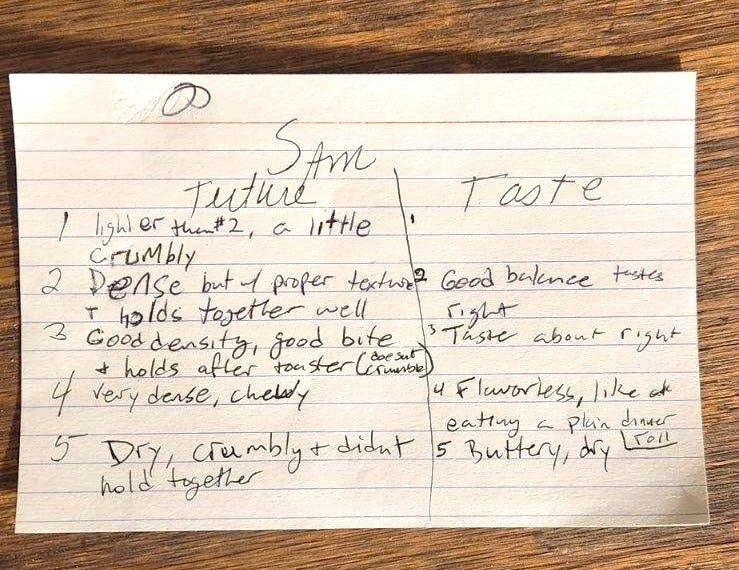 Sam
Texture Taste
1 lighter than #2, a little
crumbly
1
2 Dense but w/ proper texture
+ holds together well
2 Good balance tastes
right
3 Good density, good bite
+ holds after toaster (doesnt
crumble)
3 Taste about right
4 very dense, chewy
4 Flavorless, like
eating a plain dinner
roll
5 Dry, crumbly + didnt
hold together
5 Buttery, dry